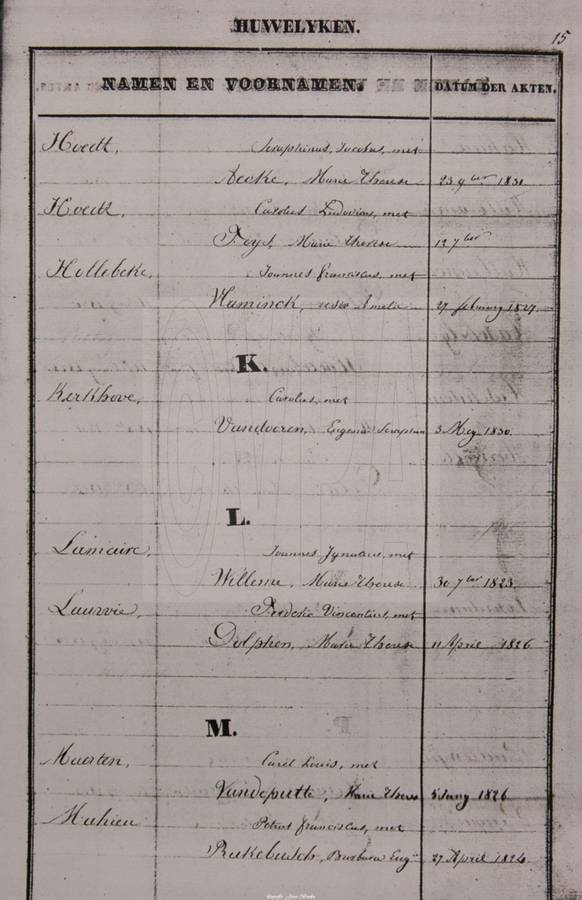 HUWELYKEN.
15
NAMEN EN VOORNAMEN. DATUM DER AKTEN.
Hoedt, Seraphinus, Jacobus, met
Aecke, Marie Therese 23 9ber 1830.
Hoedt, Carolus Ludovicus, met
Feys, Marie Therese 12 7ber
Hollebeke, Joannes franciscus, met
Vlaminck, Amelia 27 february 1827.
K.
Kerkhove, Carolus, met
Vandooren, Eugenia Seraphina 3 Mey 1830.
L.
Lamaire, Joannes Ignatius, met
Willeme, Marie Therese 30 7ber 1823.
Lauwie, Vincentius, met
Dolphen, Marie Therese 11 April 1826
M.
Maerten, Carel Louis, met
Vandeputte, Marie Therese 5 Juny 1826
Mahieu Petrus franciscus, met
Rukebusch, Barbara Eug. 27 April 1824.